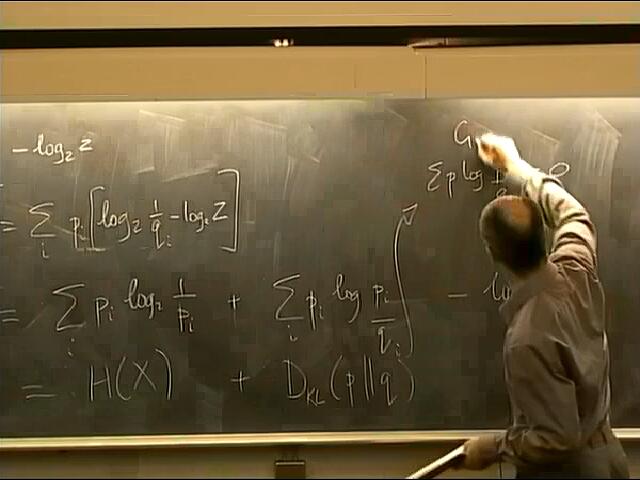 - log₂ z
= ∑ᵢ pᵢ [log₂ 1/qᵢ - log₂ Z]
= ∑ᵢ pᵢ log₂ 1/pᵢ + ∑ᵢ pᵢ log pᵢ/qᵢ -
= H(X) + D_KL(p||q)
G
∑ p log